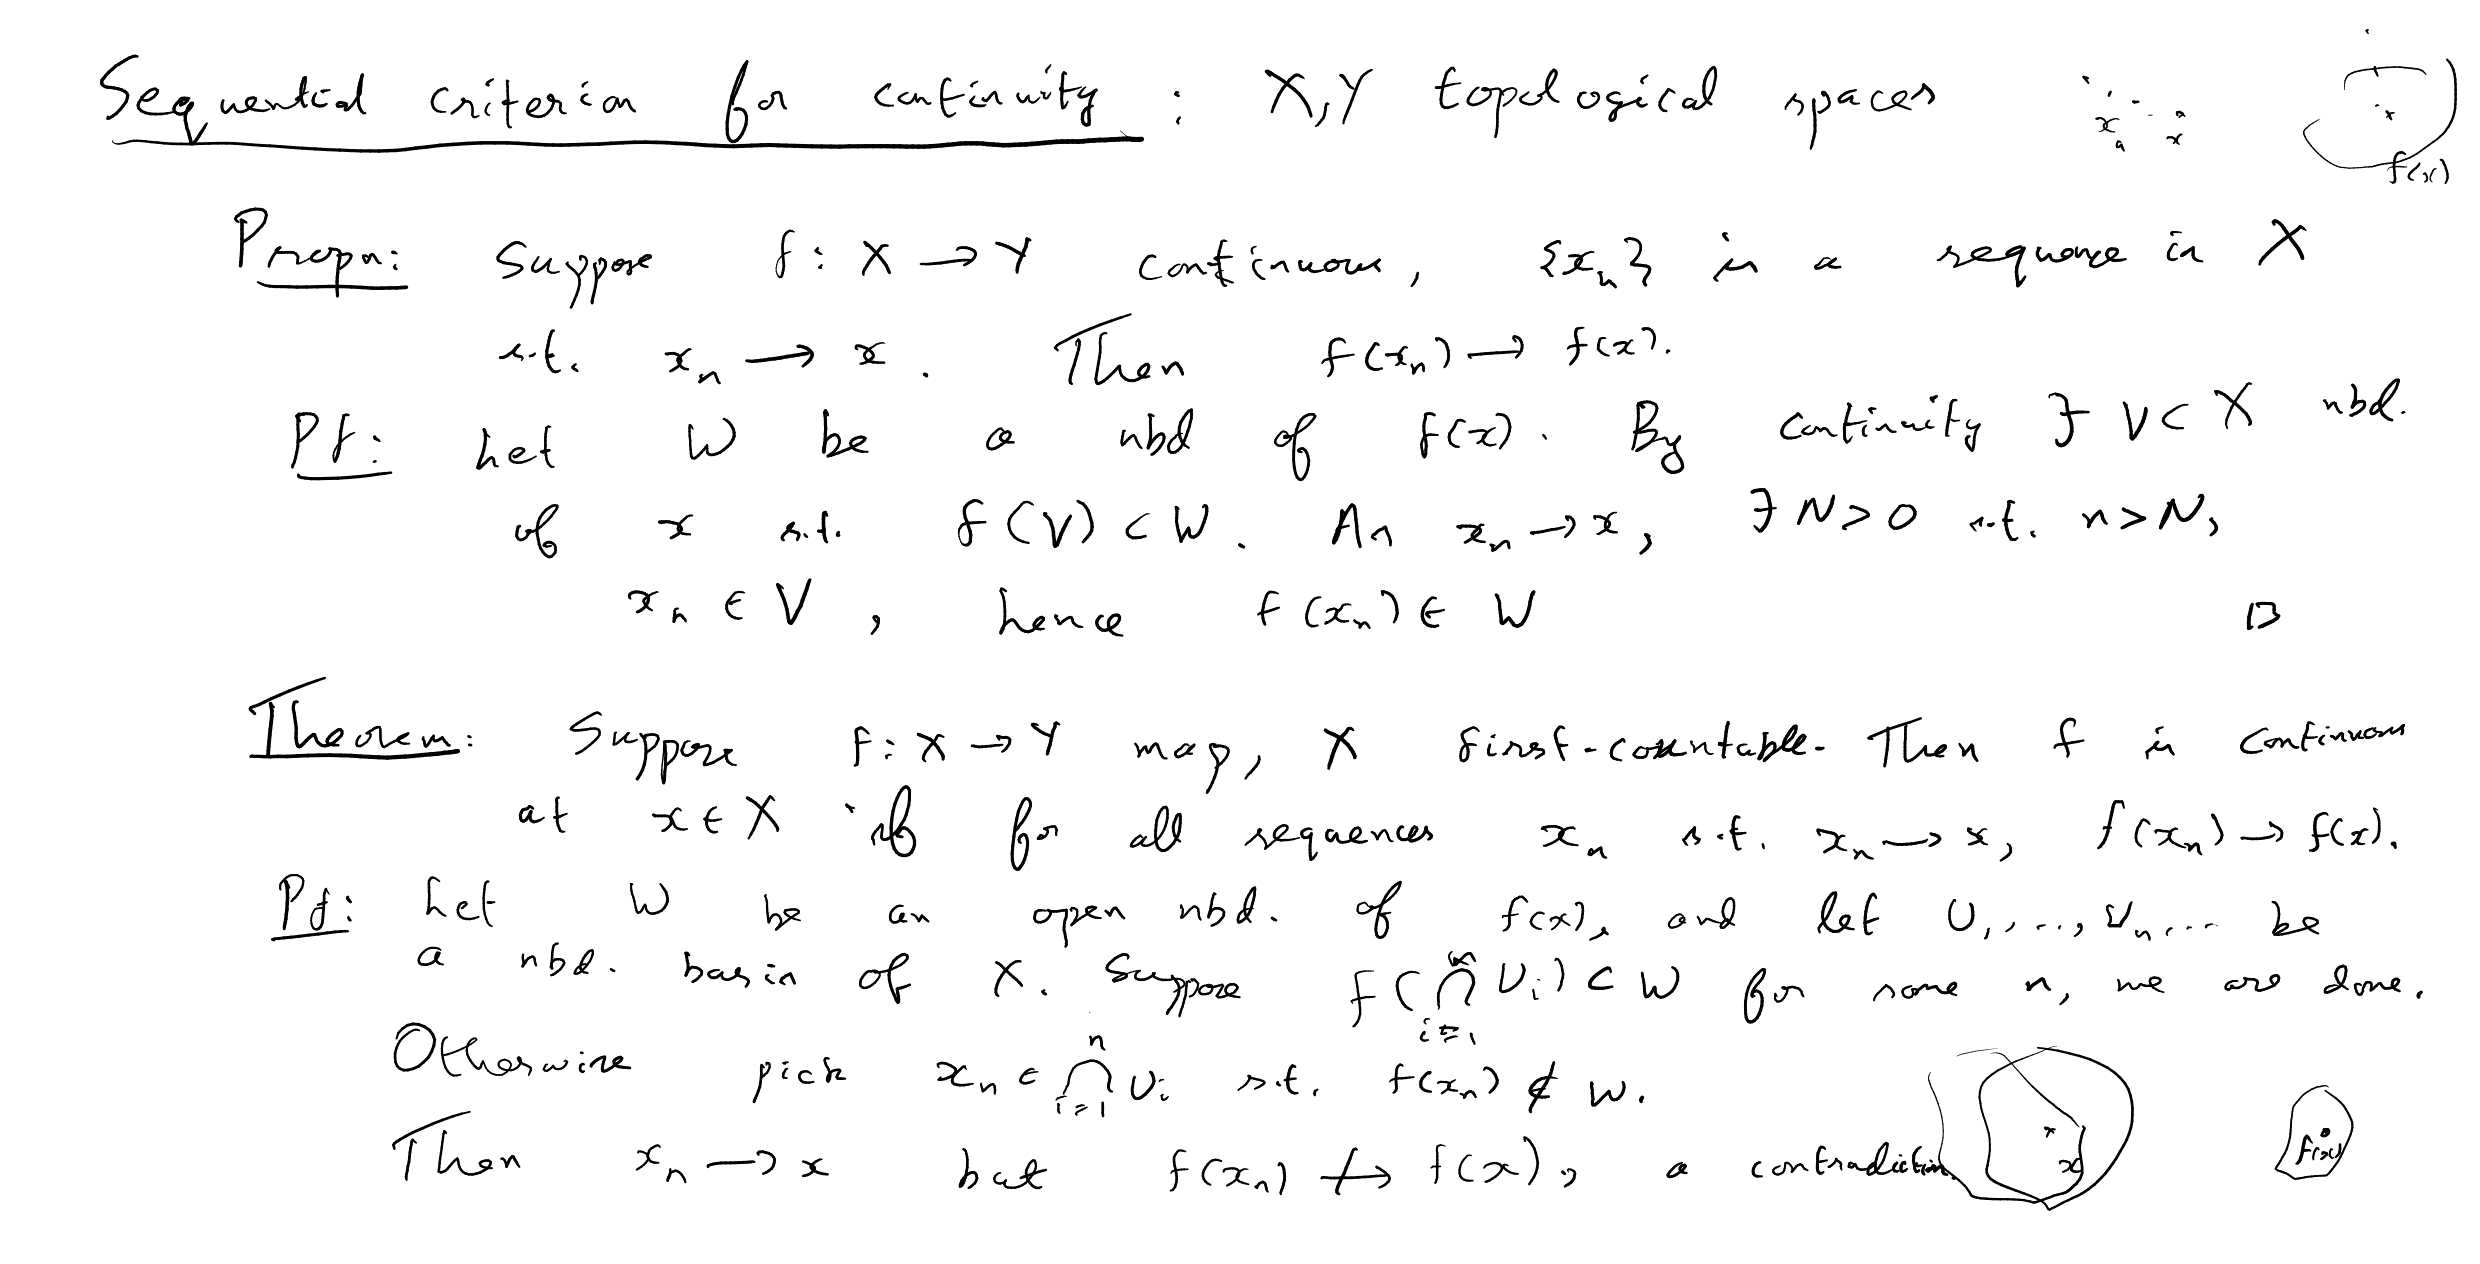 Sequential criterion for continuity : X, Y topological spaces
x_n x f(x)
Propn: Suppose f : X → Y continuous, {x_n} is a sequence in X
s.t. x_n → x. Then f(x_n) → f(x).
Pf: Let W be a nbd of f(x). By continuity ∃ V ⊂ X nbd.
of x s.t. f(V) ⊂ W. As x_n → x, ∃ N > 0 s.t. n > N,
x_n ∈ V, hence f(x_n) ∈ W □
Theorem: Suppose f : X → Y map, X first-countable. Then f is continuous
at x ∈ X if for all sequences x_n s.t. x_n → x, f(x_n) → f(x).
Pf: Let W be an open nbd. of f(x), and let U_1, ..., U_n, ... be
a nbd. basis of X. Suppose f(⋂_{i=1}^n U_i) ⊂ W for some n, we are done.
Otherwise pick x_n ∈ ⋂_{i=1}^n U_i s.t. f(x_n) ∉ W.
Then x_n → x but f(x_n) ↛ f(x), a contradiction.
x f(x)